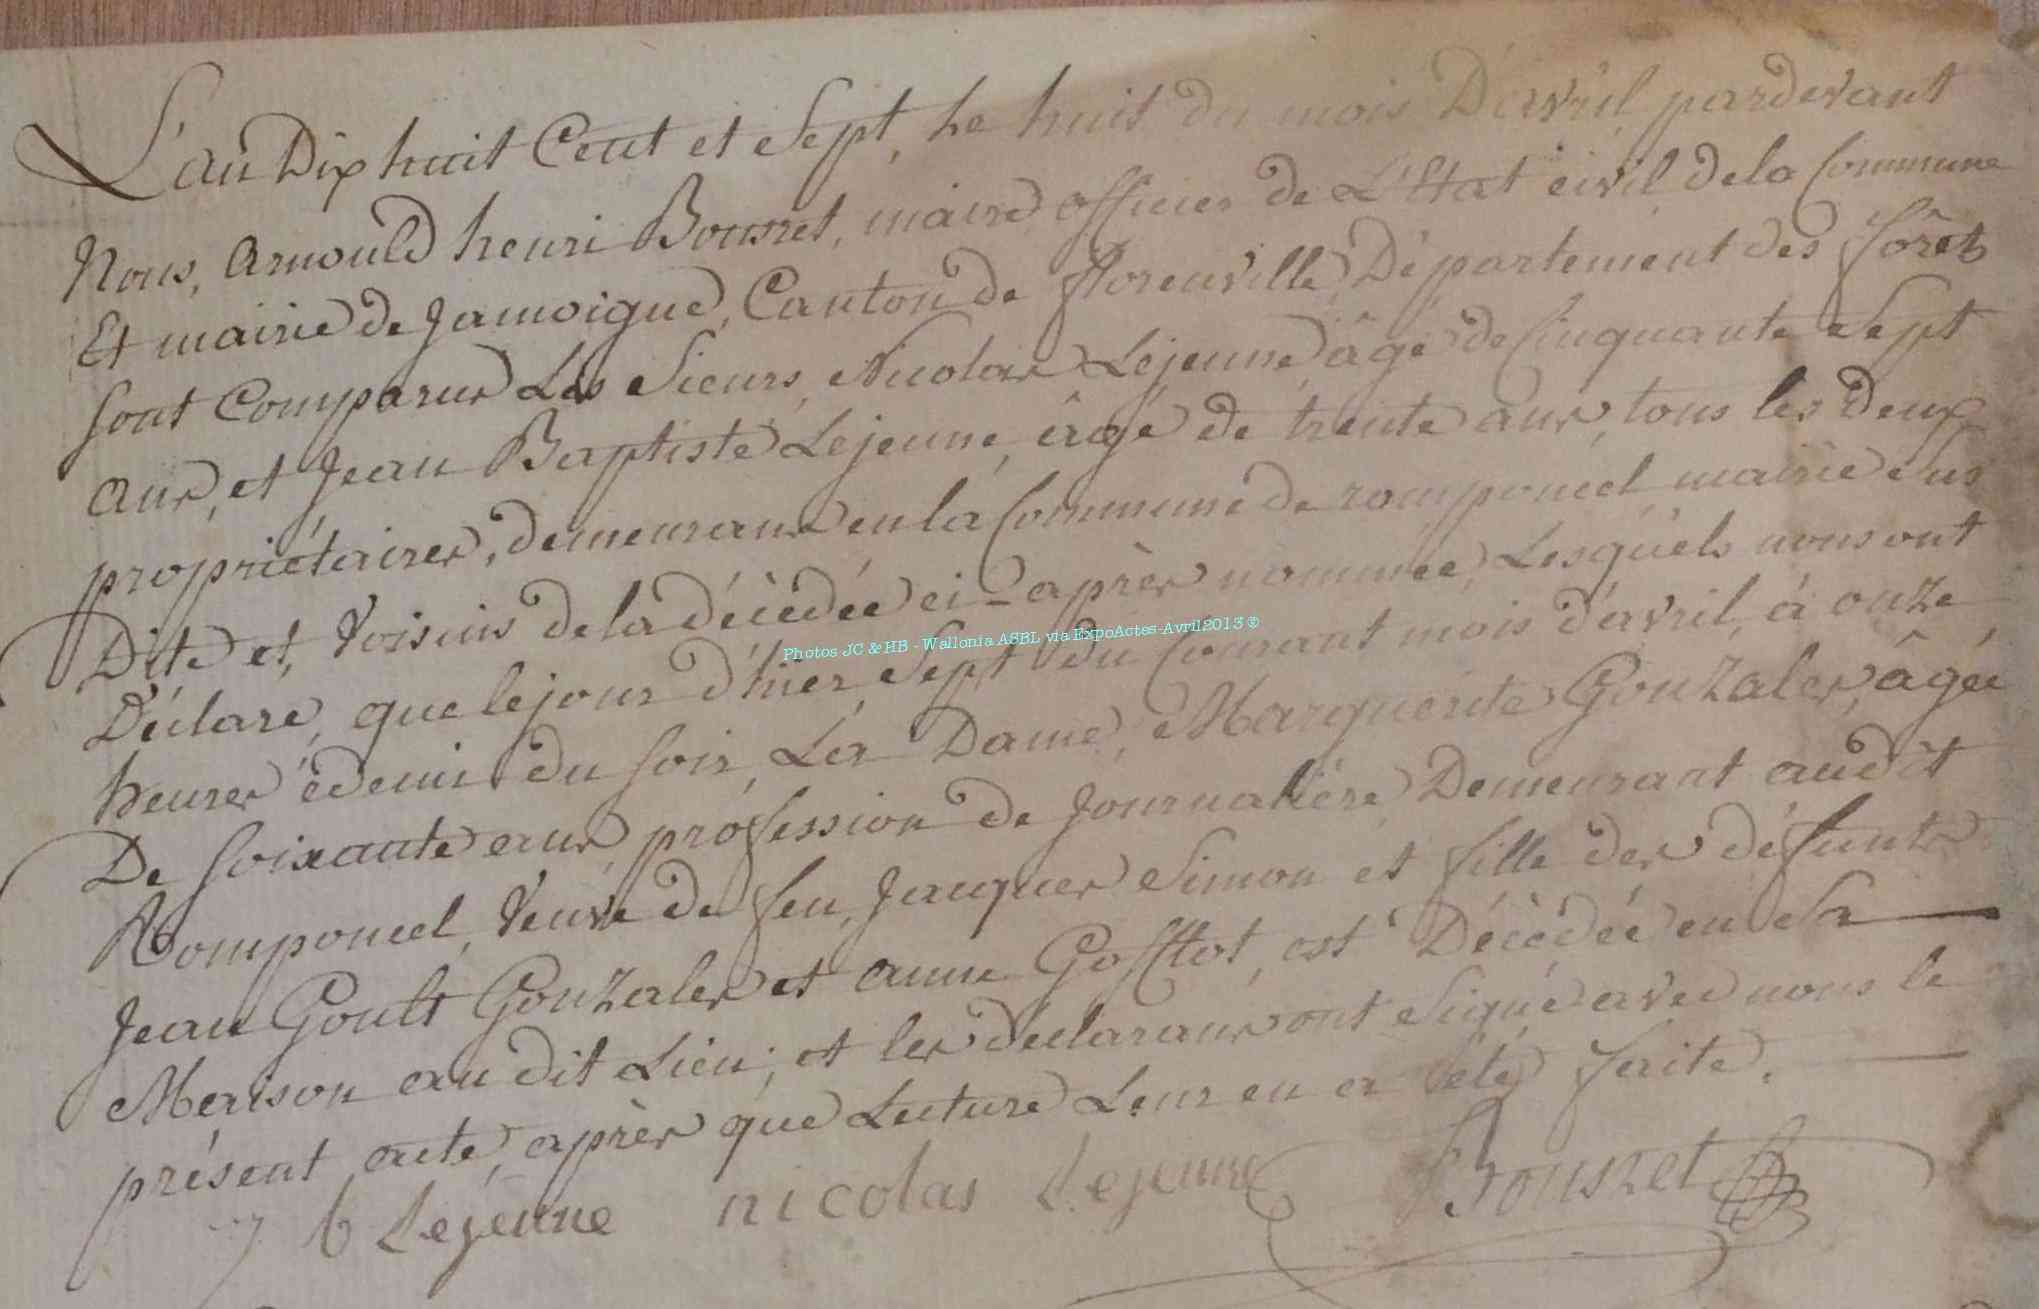 L'an Dix huit Cent et Sept, Le huit du mois D'avril pardevant
Nous, Arnould henri Bousret, maire officier de L'Etat civil de la Commune
Et mairie de Jamoigne, Canton de florenville, Département des forêts
sont Comparus Les Sieurs, Nicolas Lejeune âgé de Cinquante Sept
ans, et Jean Baptiste Lejeune, âgé de trente ans, tous les deux
propriétaires, demeurans en la Commune de romponcel mairie sus
Dite et, Voisins de la décèdée ci-après nommée, Lesquels nous ont
Déclaré, que le jour d'hier Sept du Courant mois d'avril à onze
heures èdemi du soir, La Dame, Marguerite Gonzales, âgée
De soixante ans, profession de Journalière Demeurant audit
Romponcel, Veuve de feu, Jacques Simon et fille des défunts
Jean Goult Gonzales et anne Gofflot, est Décèdée en Sa
Maison au dit Lieu; et les déclarans ont Signé avec nous le
présent acte, après que Lecture Leur en a été faite.
b Lejeune nicolas Lejeune Bousret
Photos JC & HB - Wallonia ASBL via ExpoActes-Avril2013 ©